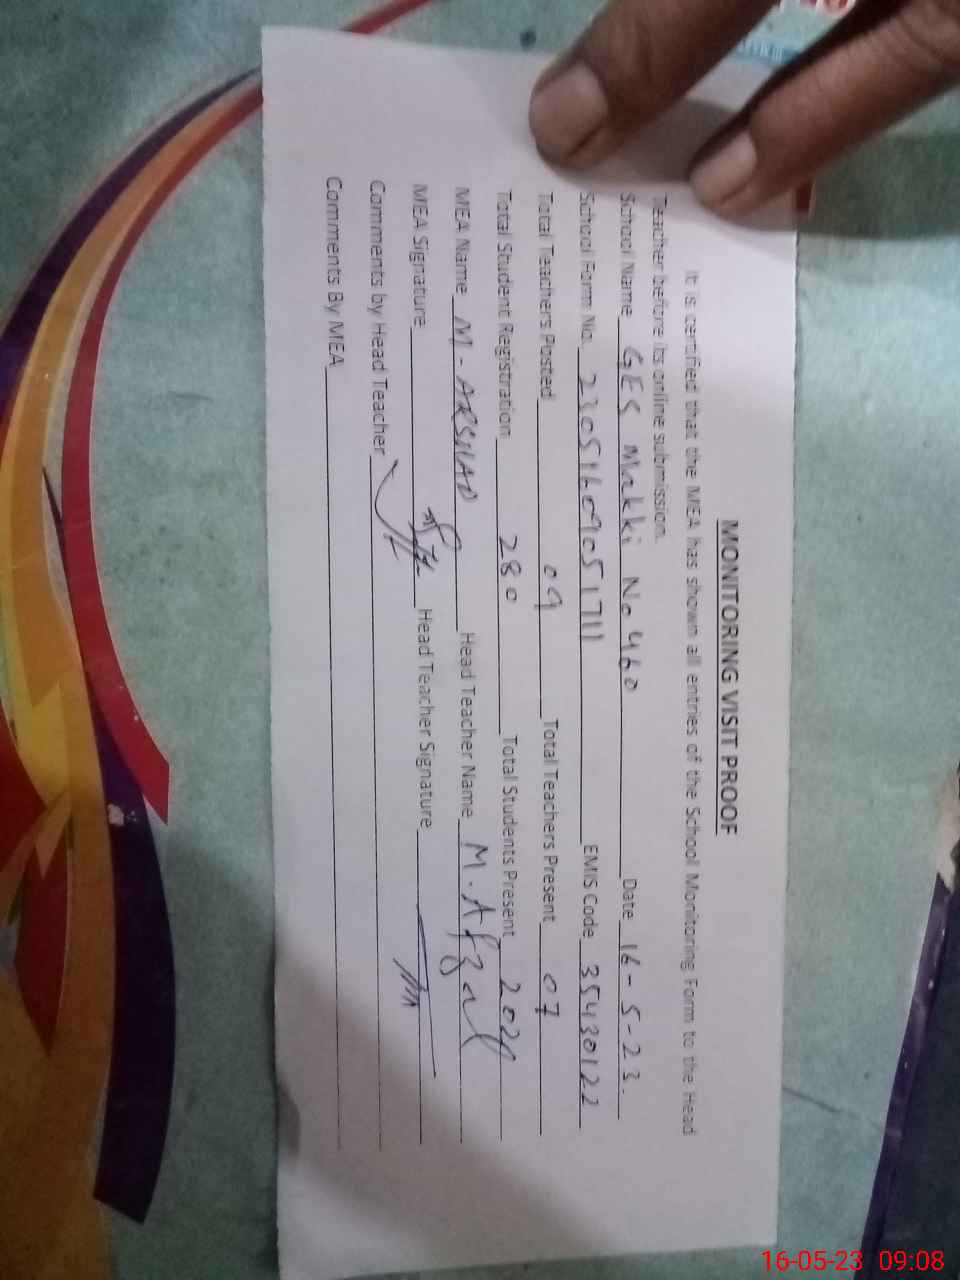 MONITORING VISIT PROOF
It is certified that the MEA has shown all entries of the School Monitoring Form to the Head
Teacher before its online submission.
School Name GES Makki No 460 Date 16-5-23.
School Form No. 23051609051711 EMIS Code 35430122
Total Teachers Posted 09 Total Teachers Present 07
Total Student Registration 280 Total Students Present
MEA Name M-ARSHAD Head Teacher Name M.Afzal
MEA Signature Head Teacher Signature
Comments by Head Teacher
Comments By MEA
16-05-23 09:08